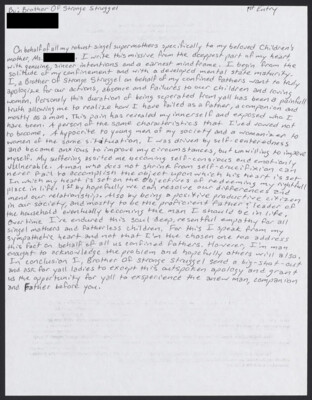 By: Brother Of Strange Struggel
1st Entry
On behalf of all my robust singel supermothers specifically to my beloved children's
mother, Ms. I write this missive from the deepest part of my heart
with genuine, sincer intentions and a earnest mindframe. I begin from the
solitude of my confinement and with a developed mental state maturity.
I, a Brother Of Strange Struggel on behalf of my confined fathers want to truly
apologize for our actions, absence and failures to our children and loving
women. Personly this duration of being seperated from yall has been a painfull
truth allowing me to realize how I have failed as a father, a companion and
mostly as a man. This pain has revealed my innerself and exposed who I
have been. A person of the same characteristics that I'led vowed not
to become. A hypocrite to young men of my society and a womanizer to
women of the same situation, I was driven by self-centeredness
and became anxious to improve my circumstances, but unwilling to improve
myself. My suffering assisted me becoming self-conscious and emotionaly
vulnerable. A man who does not shrink from self-crucifixion can
never fail to accomplish the object upon which his heart is set.
In wish my heart is set on the objectives of redeeming my rightfull
place in life. 1st by hopefully we can resolve our differences and
mend our relationship. Also by being a positive productive citizen
in our society, and mostly to be the proficient father & leader of
the household eventually becoming the man I should be in life.
Over time I've endured this soul deep, resentful empathy for all
singel mothers and fatherless children. For this I speak from my
sympathetic heart and not that I'm the chosen one too address
this fact on behalf of all us confined fathers. However, I'm man
enough to acknowledge the problem and hopefully others will also.
In conclusion I, Brother Of strange struggel send a big-shot-out
and ask for yall ladies to except this outspoken apology and grant
us the opportunity for yall to exsperience the new-man, companion
and Father before you.